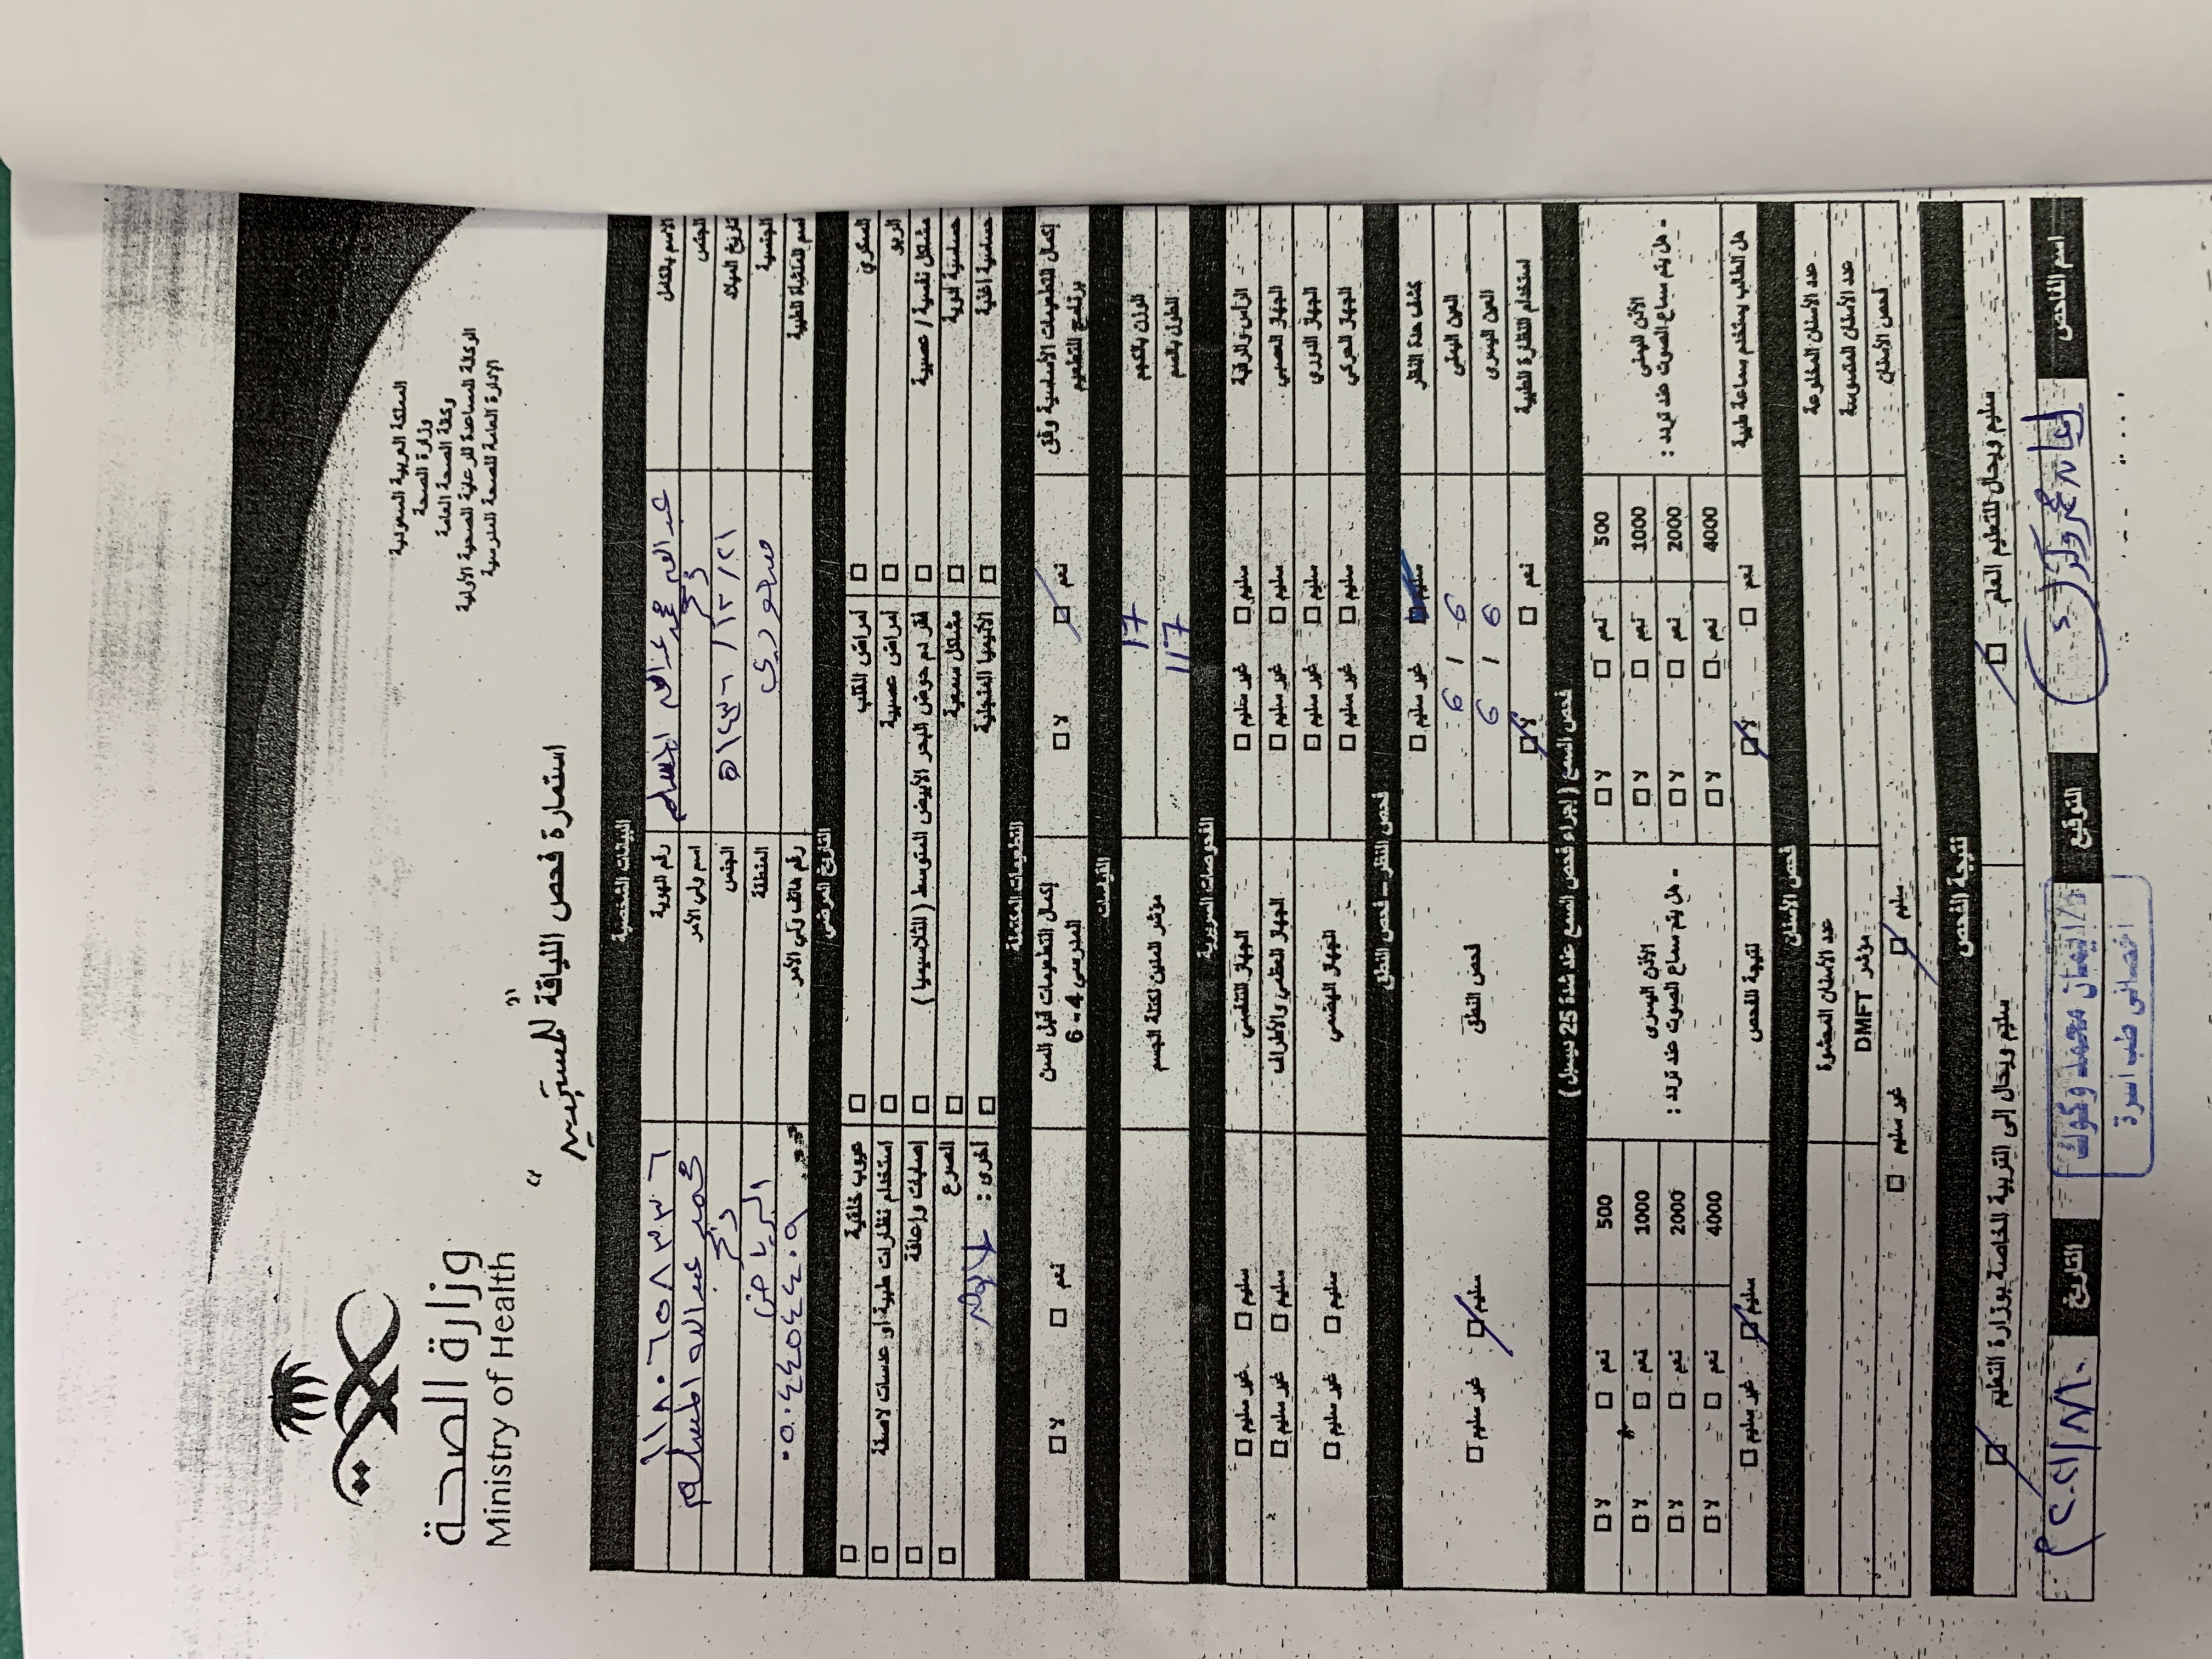 المملكة العربية السعودية
وزارة الصحة
وكالة الصحة العامة
الوكالة المساعدة للرعاية الصحية الأولية
الإدارة العامة للصحة المدرسية
وزارة الصحة
Ministry of Health
استمارة فحص اللياقة للمستجدين
البيانات الشخصية
الاسم بالكامل عبدالله محمد عبدالله المسلم رقم الهوية
الجنس ذكر اسم ولي الأمر محمد عبدالله المسلم
تاريخ الميلاد ٢١ / ١٢ / ١٤٣٦هـ الجنس ذكر
الجنسية سعودي المنطقة الرياض
اسم المنشأة الطبية رقم هاتف ولي الأمر ٠٥٠٤٤٥٤٤٠٩
التاريخ المرضي
السكري □ أمراض القلب □ عيوب خلقية □
الربو □ أمراض عصبية □ استخدام نظارات طبية أو عدسات لاصقة □
مشاكل نفسية / عصبية □ فقر دم حوض البحر الأبيض المتوسط (الثلاسيميا) □ إصابات وإعاقة □
حساسية أدوية □ مشاكل سمعية □ الصرع □
حساسية أغذية □ الأنيميا المنجلية □ أخرى : لا يوجد
التطعيمات المكتملة
إكمال التطعيمات الأساسية وفق برنامج التطعيم □ نعم □ لا إكمال التطعيمات قبل السن المدرسي 4 - 6 □ نعم □ لا
القياسات
الوزن بالكجم 17 مؤشر السمن لكتلة الجسم
الطول بالسم 117
الفحوصات السريرية
الرأس والرقبة □ سليم □ غير سليم الجهاز التنفسي □ سليم □ غير سليم
الجهاز العصبي □ سليم □ غير سليم الجهاز العظمي والأطراف □ سليم □ غير سليم
الجهاز الدوري □ سليم □ غير سليم الجهاز الهضمي □ سليم □ غير سليم
الجهاز الحركي □ سليم □ غير سليم
فحص النظر - فحص النطق
كشف حدة النظر □ سليم □ غير سليم فحص النطق □ سليم □ غير سليم
العين اليمنى 6 / 6
العين اليسرى 6 / 6
استخدام النظارة الطبية □ نعم □ لا
فحص السمع ( إجراء فحص السمع عند شدة 25 ديسيبل )
الأذن اليمنى
- هل يتم سماع الصوت عند تردد :
الأذن اليسرى
- هل يتم سماع الصوت عند تردد :
500 □ نعم □ لا 500 □ نعم □ لا
1000 □ نعم □ لا 1000 □ نعم □ لا
2000 □ نعم □ لا 2000 □ نعم □ لا
4000 □ نعم □ لا 4000 □ نعم □ لا
هل الطالب يستخدم سماعة طبية □ نعم □ لا نتيجة الفحص □ سليم □ غير سليم
فحص الأسنان
عدد الأسنان المخلوعة عدد الأسنان المحشوة
عدد الأسنان المتسوسة مؤشر DMFT
فحص الأسنان □ سليم □ غير سليم
نتيجة الفحص
سليم ويحال للتعليم العام □ سليم ويحال إلى التربية الخاصة بوزارة التعليم □
اسم الفاحص التوقيع د/ ايمان محمد وكوك التاريخ
اخصائي طب اسرة